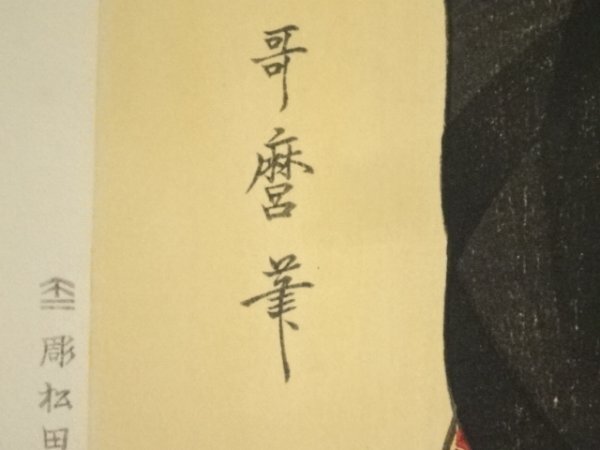 哥麿筆
彫松田